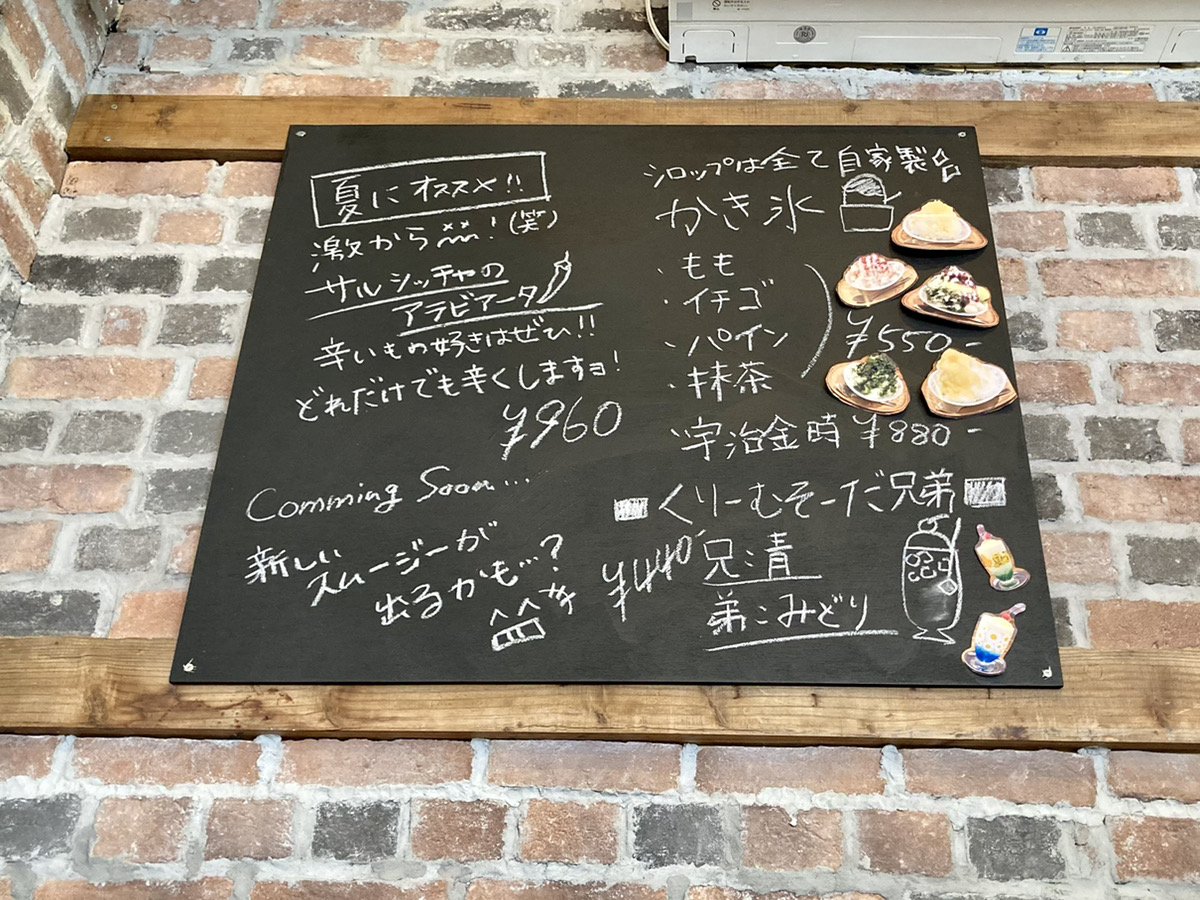 夏にオススメ!!
激から!(笑)
サルシッチャの
アラビアータ
辛いもの好きはぜひ!!
どれだけでも辛くしますヨ!
¥960
Comming Soon...
新しい
スムージーが
出るかも…?
シロップは全て自家製
かき氷
・もも
・イチゴ
・パイン
・抹茶
¥550-
・宇治金時 ¥880-
くりーむそーだ兄弟
¥440
兄:青
弟:みどり